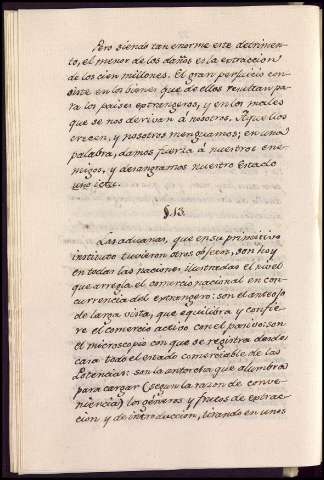 Pero siendo tan enorme este detrimen-
to, el menor de los daños es la extraccion
de los cien millones. El gran perjuicio con-
siste en los bienes que de ellos resultan pa-
ra los paises extrangeros, y en los males
que se nos derivan á nosotros. Aquellos
crecen, y nosotros menguamos; en una
palabra, damos fuerza á nuestros ene-
migos, y desangramos nuestro Estado
§. 13.
Las aduanas, que en su primitivo
instituto tuvieron otros objetos, son hoy
en todas las naciones ilustradas el nivel
que arregla el comercio nacional en con-
currencia del extrangero: son el anteojo
de larga vista, que equilibra y confie-
re el comercio activo con el pasivo: son
el microscopio con que se registra desde
cara todo el estado comerciable de las
Potencias: son la antorcha que alumbra
para cargar (segun la razon de conve-
niencia) los géneros y frutos de extrac-
cion y de introduccion, tirando en unos